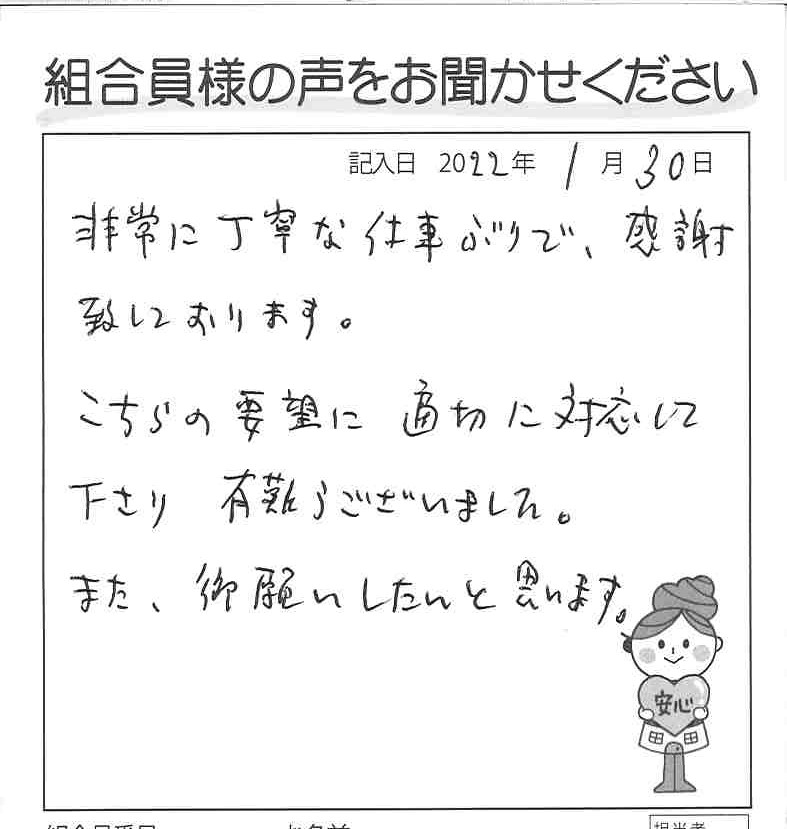 組合員様の声をお聞かせください
記入日 2022年 1月30日
非常に丁寧な仕事ぶりで、感謝
致しております。
こちらの要望に 適切に対応して
下さり 有難うございました。
また、御願いしたいと思います。
安心